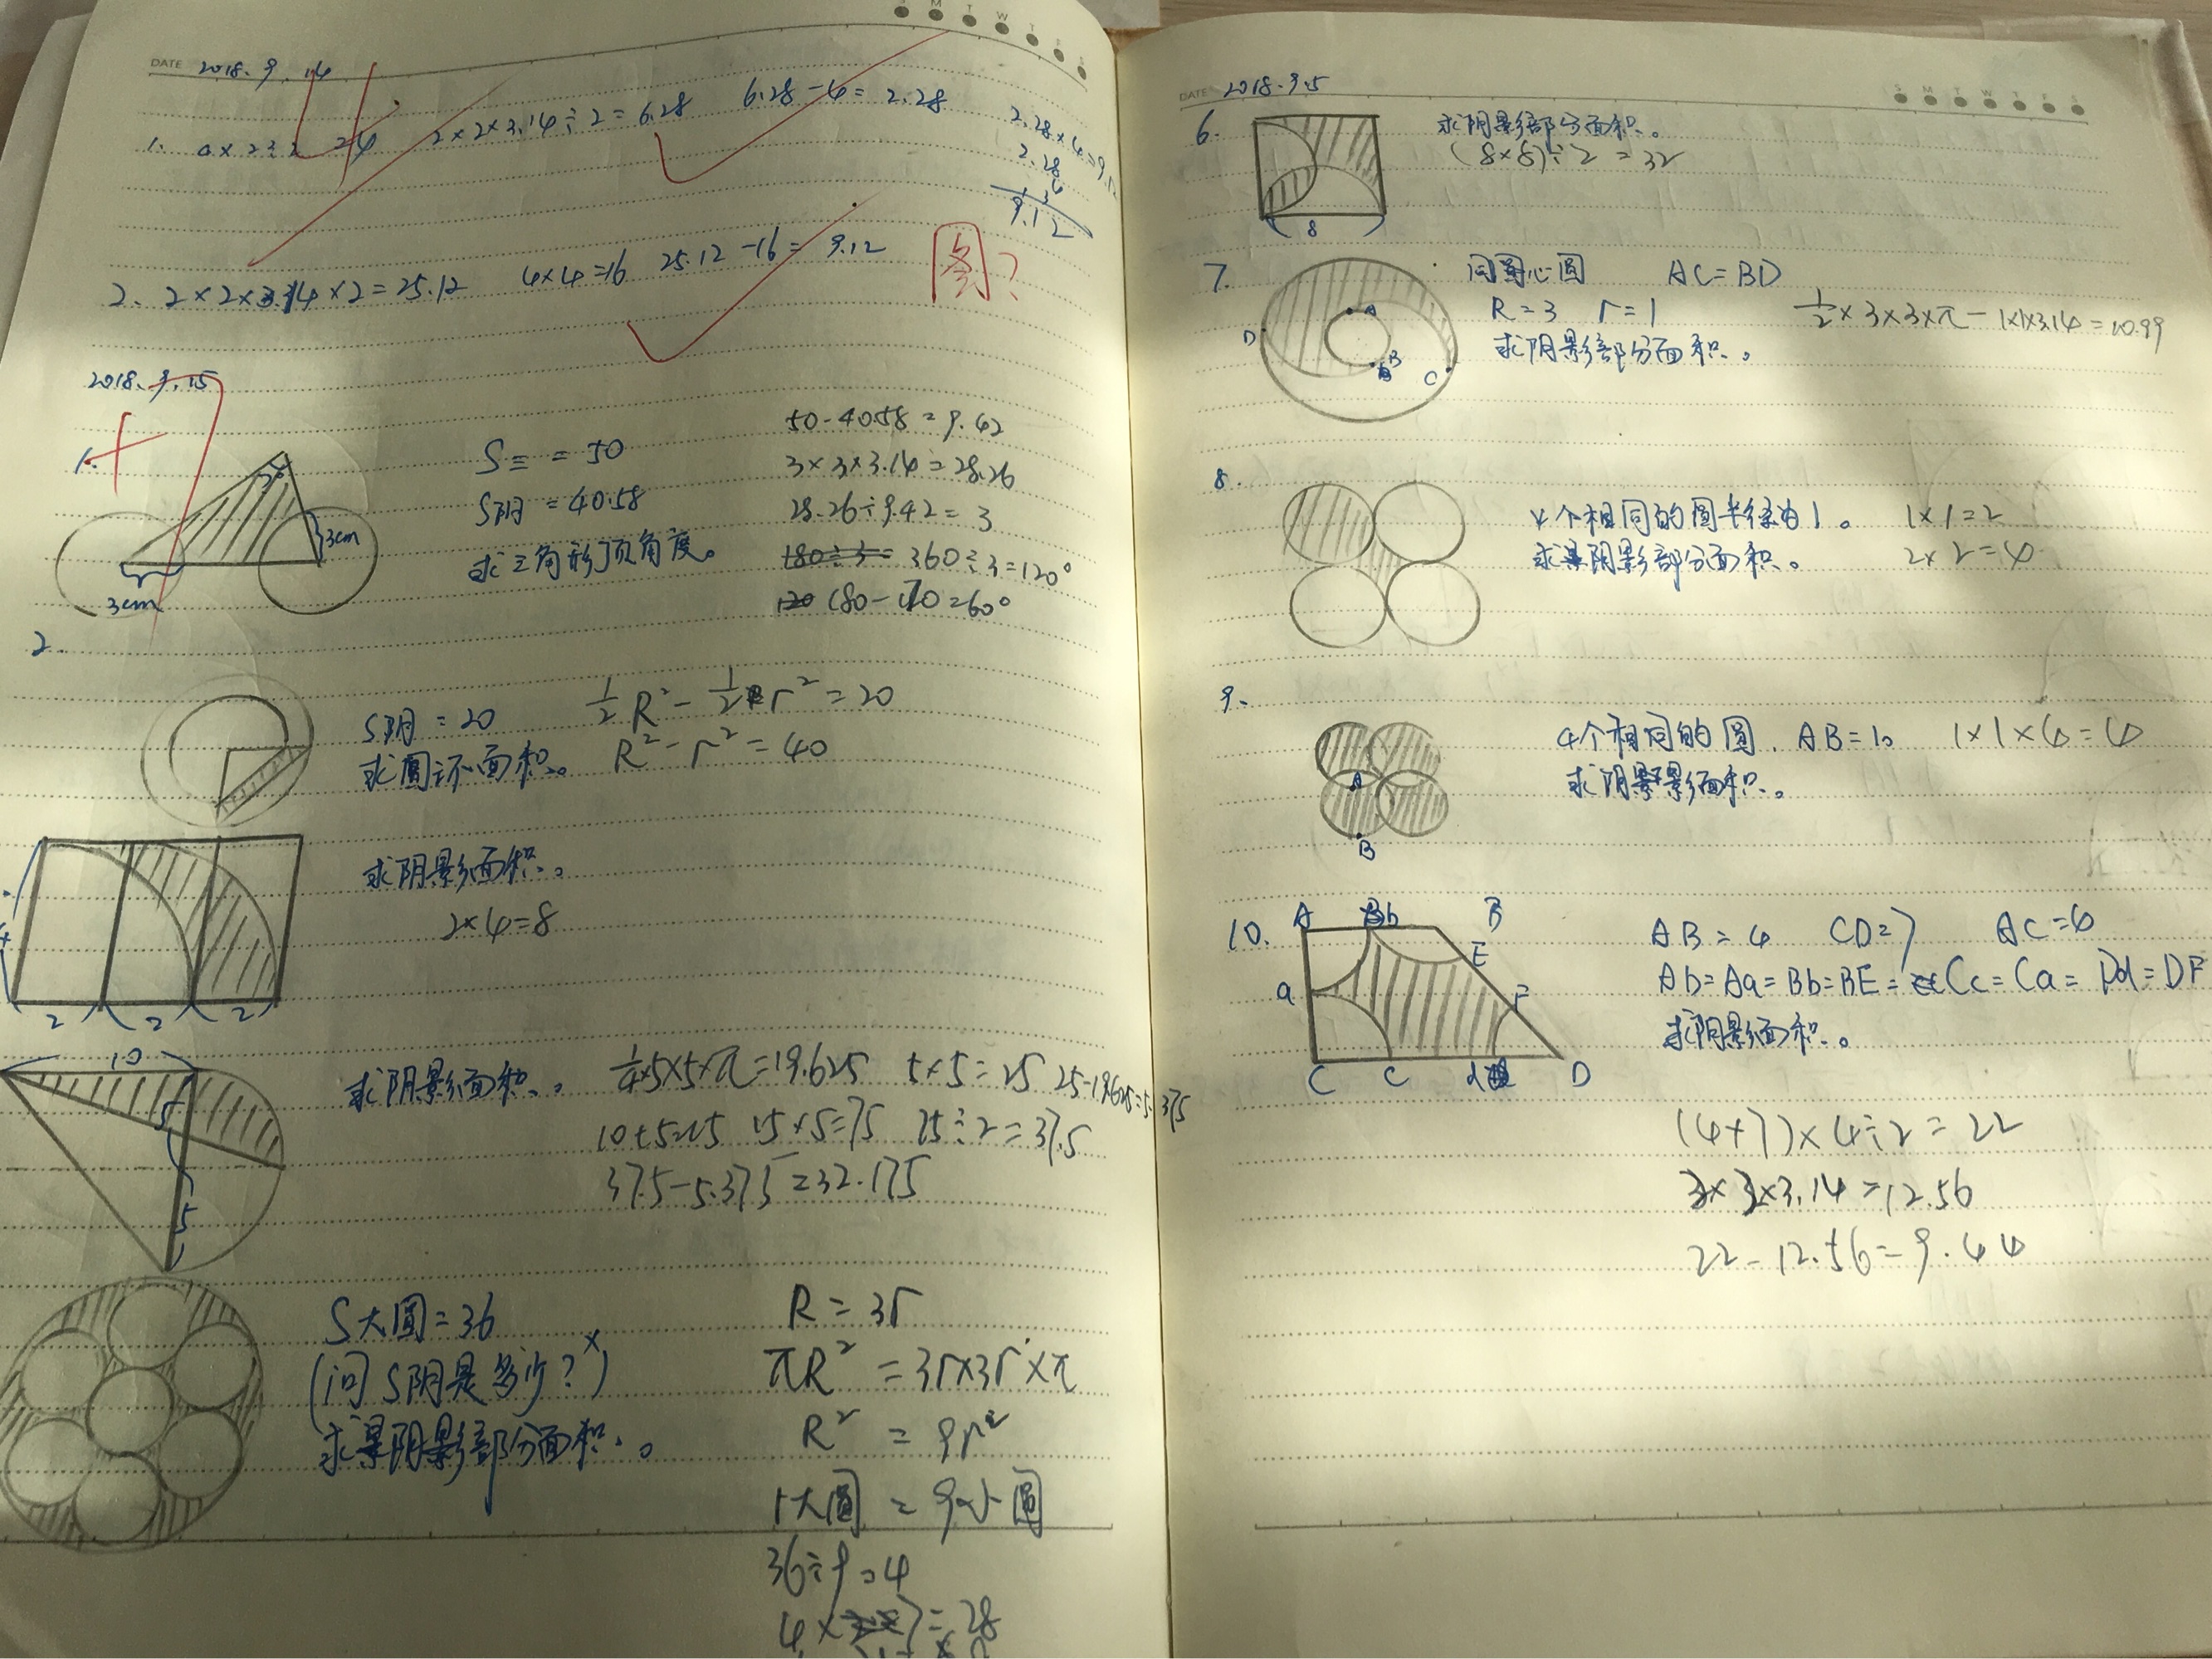 DATE 2018.9.14
1. 2×2×3.14÷2=6.28 6.28-4=2.28
2.28×4=9.12
2.28
4
9.12
2. 2×2×3.14×2=25.12 4×4=16 25.12-16=9.12
图?
2018.9.15
1.
S三=50
S阴=40.58
求三角形顶角度。
3cm
3cm
50-40.58=9.42
3×3×3.14=28.26
28.26÷9.42=3
360÷3=120°
180-120=60°
2.
S阴=20
求圆环面积。
½R²-½r²=20
R²-r²=40
求阴影面积。
2×4=8
4
2 2 2
10
5
5
求阴影面积。
¼×5×5×π=19.625 5×5=25 25-19.625=5.375
10+5=15 15×5=75 75÷2=37.5
37.5-5.375=32.175
S大圆=36
(问S阴是多少?×)
求阴影部分面积。
R=3r
πR²=3r×3r×π
R²=9r²
1大圆=9小圆
36÷9=4
4×7=28
DATE 2018.9.5
S M T W T F S
6.
求阴影部分面积。
(8×8)÷2=32
8
7.
同圆心圆 AC=BD
R=3 r=1
求阴影部分面积。
½×3×3×π-1×1×3.14=10.99
A
B
D
C
8.
4个相同的圆半径为1。
求阴影部分面积。
1×1=2
2×2=4
9.
4个相同的圆.AB=1。
求阴影面积。
1×1×4=4
A
B
10.
A b B
E
a
F
C c d D
AB=4 CD=7 AC=4
Ab=Aa=Bb=BE=Cc=Ca=Dd=DF
求阴影面积。
(4+7)×4÷2=22
×3.14=12.56
22-12.56=9.44